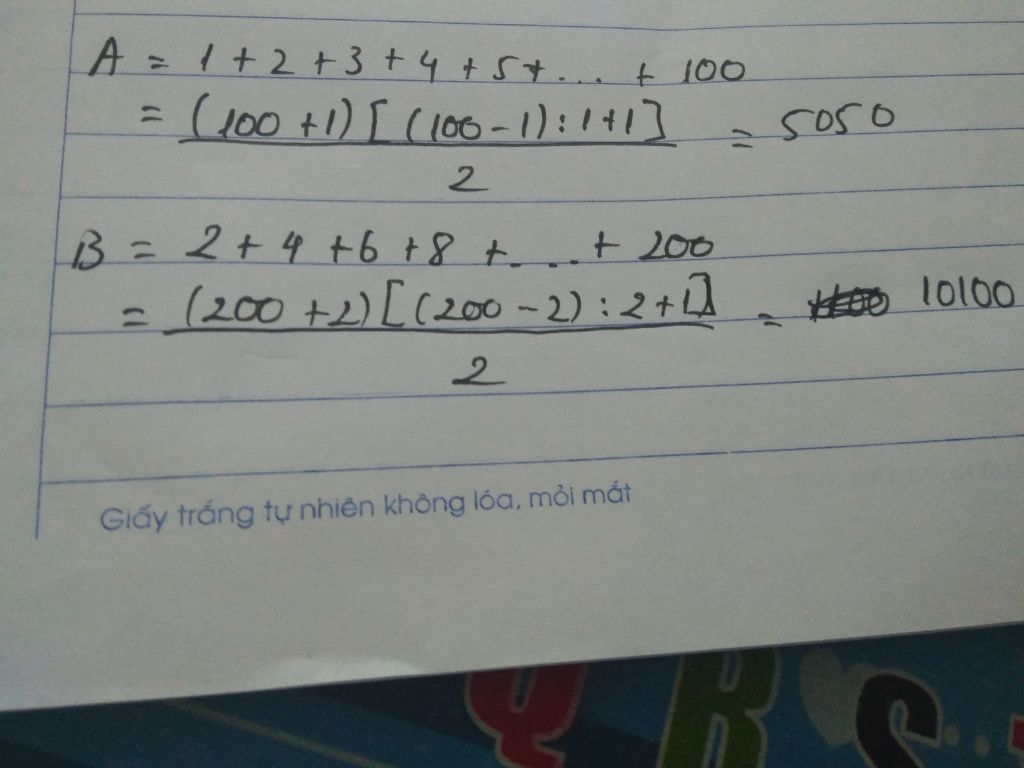 A = 1 + 2 + 3 + 4 + 5 + ... + 100
= (100 + 1) [(100 - 1) : 1 + 1] / 2 = 5050
B = 2 + 4 + 6 + 8 + ... + 200
= (200 + 2) [(200 - 2) : 2 + 1] / 2 = 10100
Giấy trắng tự nhiên không lóa, mỏi mắt
Q R S